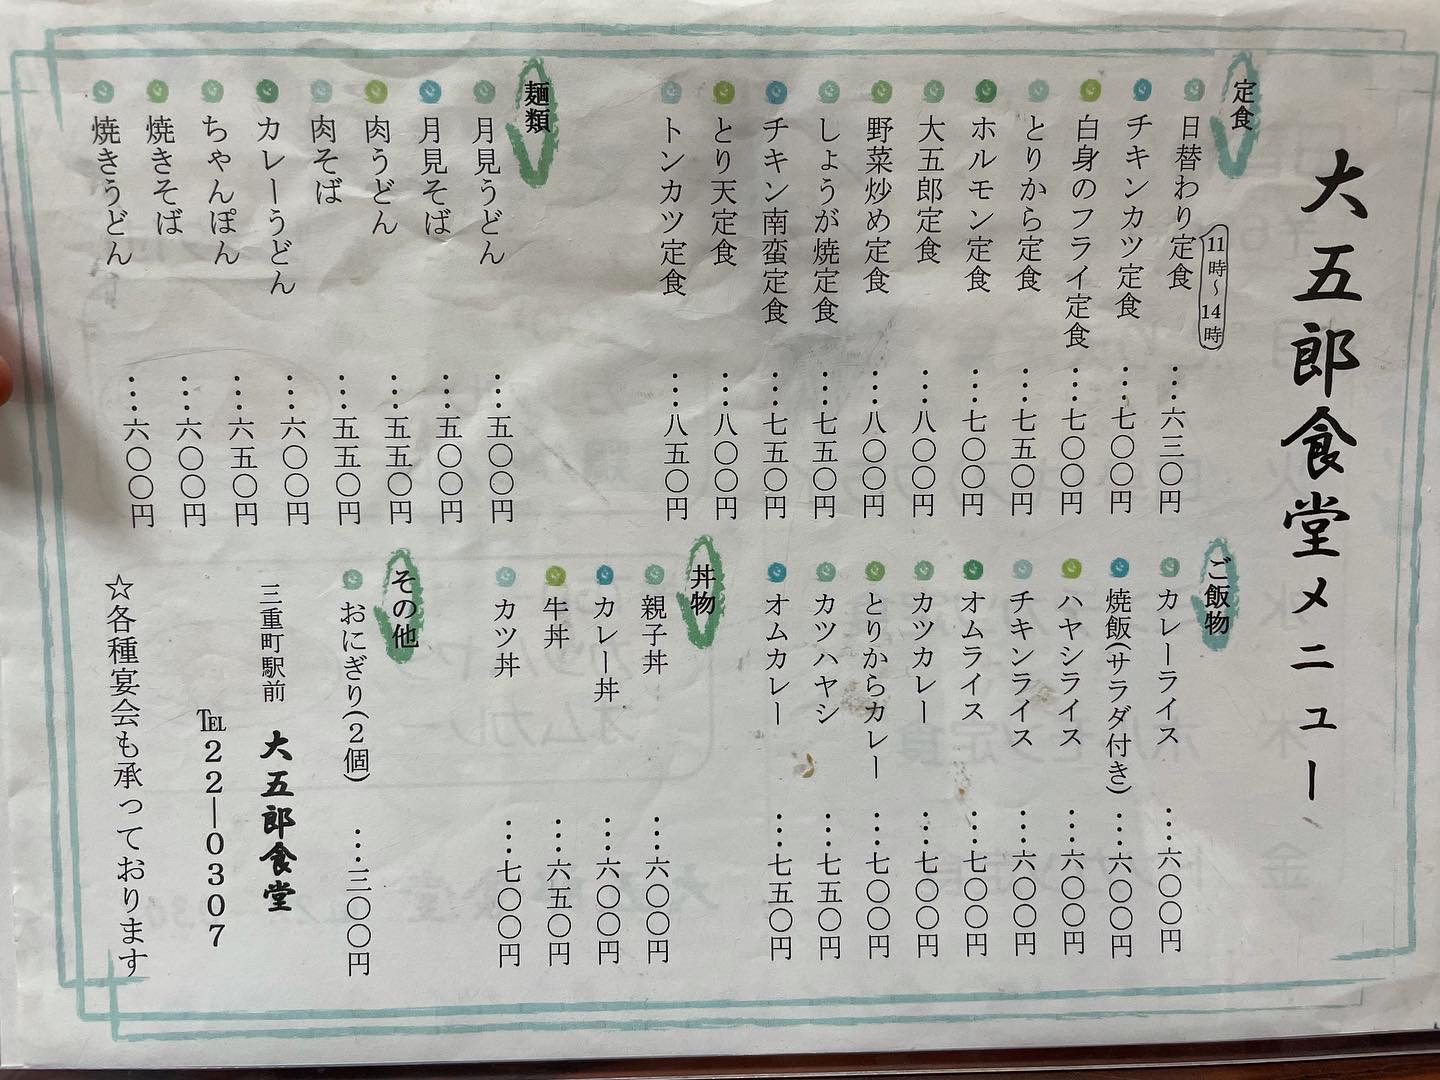 大五郎食堂メニュー
定食
日替わり定食 …六三〇円
11時〜14時
チキンカツ定食 …七〇〇円
白身のフライ定食 …七〇〇円
とりから定食 …七五〇円
ホルモン定食 …七〇〇円
大五郎定食 …八〇〇円
野菜炒め定食 …八〇〇円
しょうが焼定食 …七五〇円
チキン南蛮定食 …七五〇円
とり天定食 …八〇〇円
トンカツ定食 …八五〇円
麺類
月見うどん …五〇〇円
月見そば …五〇〇円
肉うどん …五五〇円
肉そば …五五〇円
カレーうどん …六〇〇円
ちゃんぽん …六五〇円
焼きそば …六〇〇円
焼きうどん …六〇〇円
ご飯物
カレーライス …六〇〇円
焼飯(サラダ付き) …六〇〇円
ハヤシライス …六〇〇円
チキンライス …六〇〇円
オムライス …六五〇円
カツカレー …七〇〇円
とりからカレー …七〇〇円
カツハヤシ …七五〇円
オムカレー …七五〇円
丼物
親子丼 …六〇〇円
カレー丼 …六〇〇円
牛丼 …六五〇円
カツ丼 …七〇〇円
その他
おにぎり(2個) …三〇〇円
三重町駅前 大五郎食堂
℡22―0307
☆各種宴会も承っております